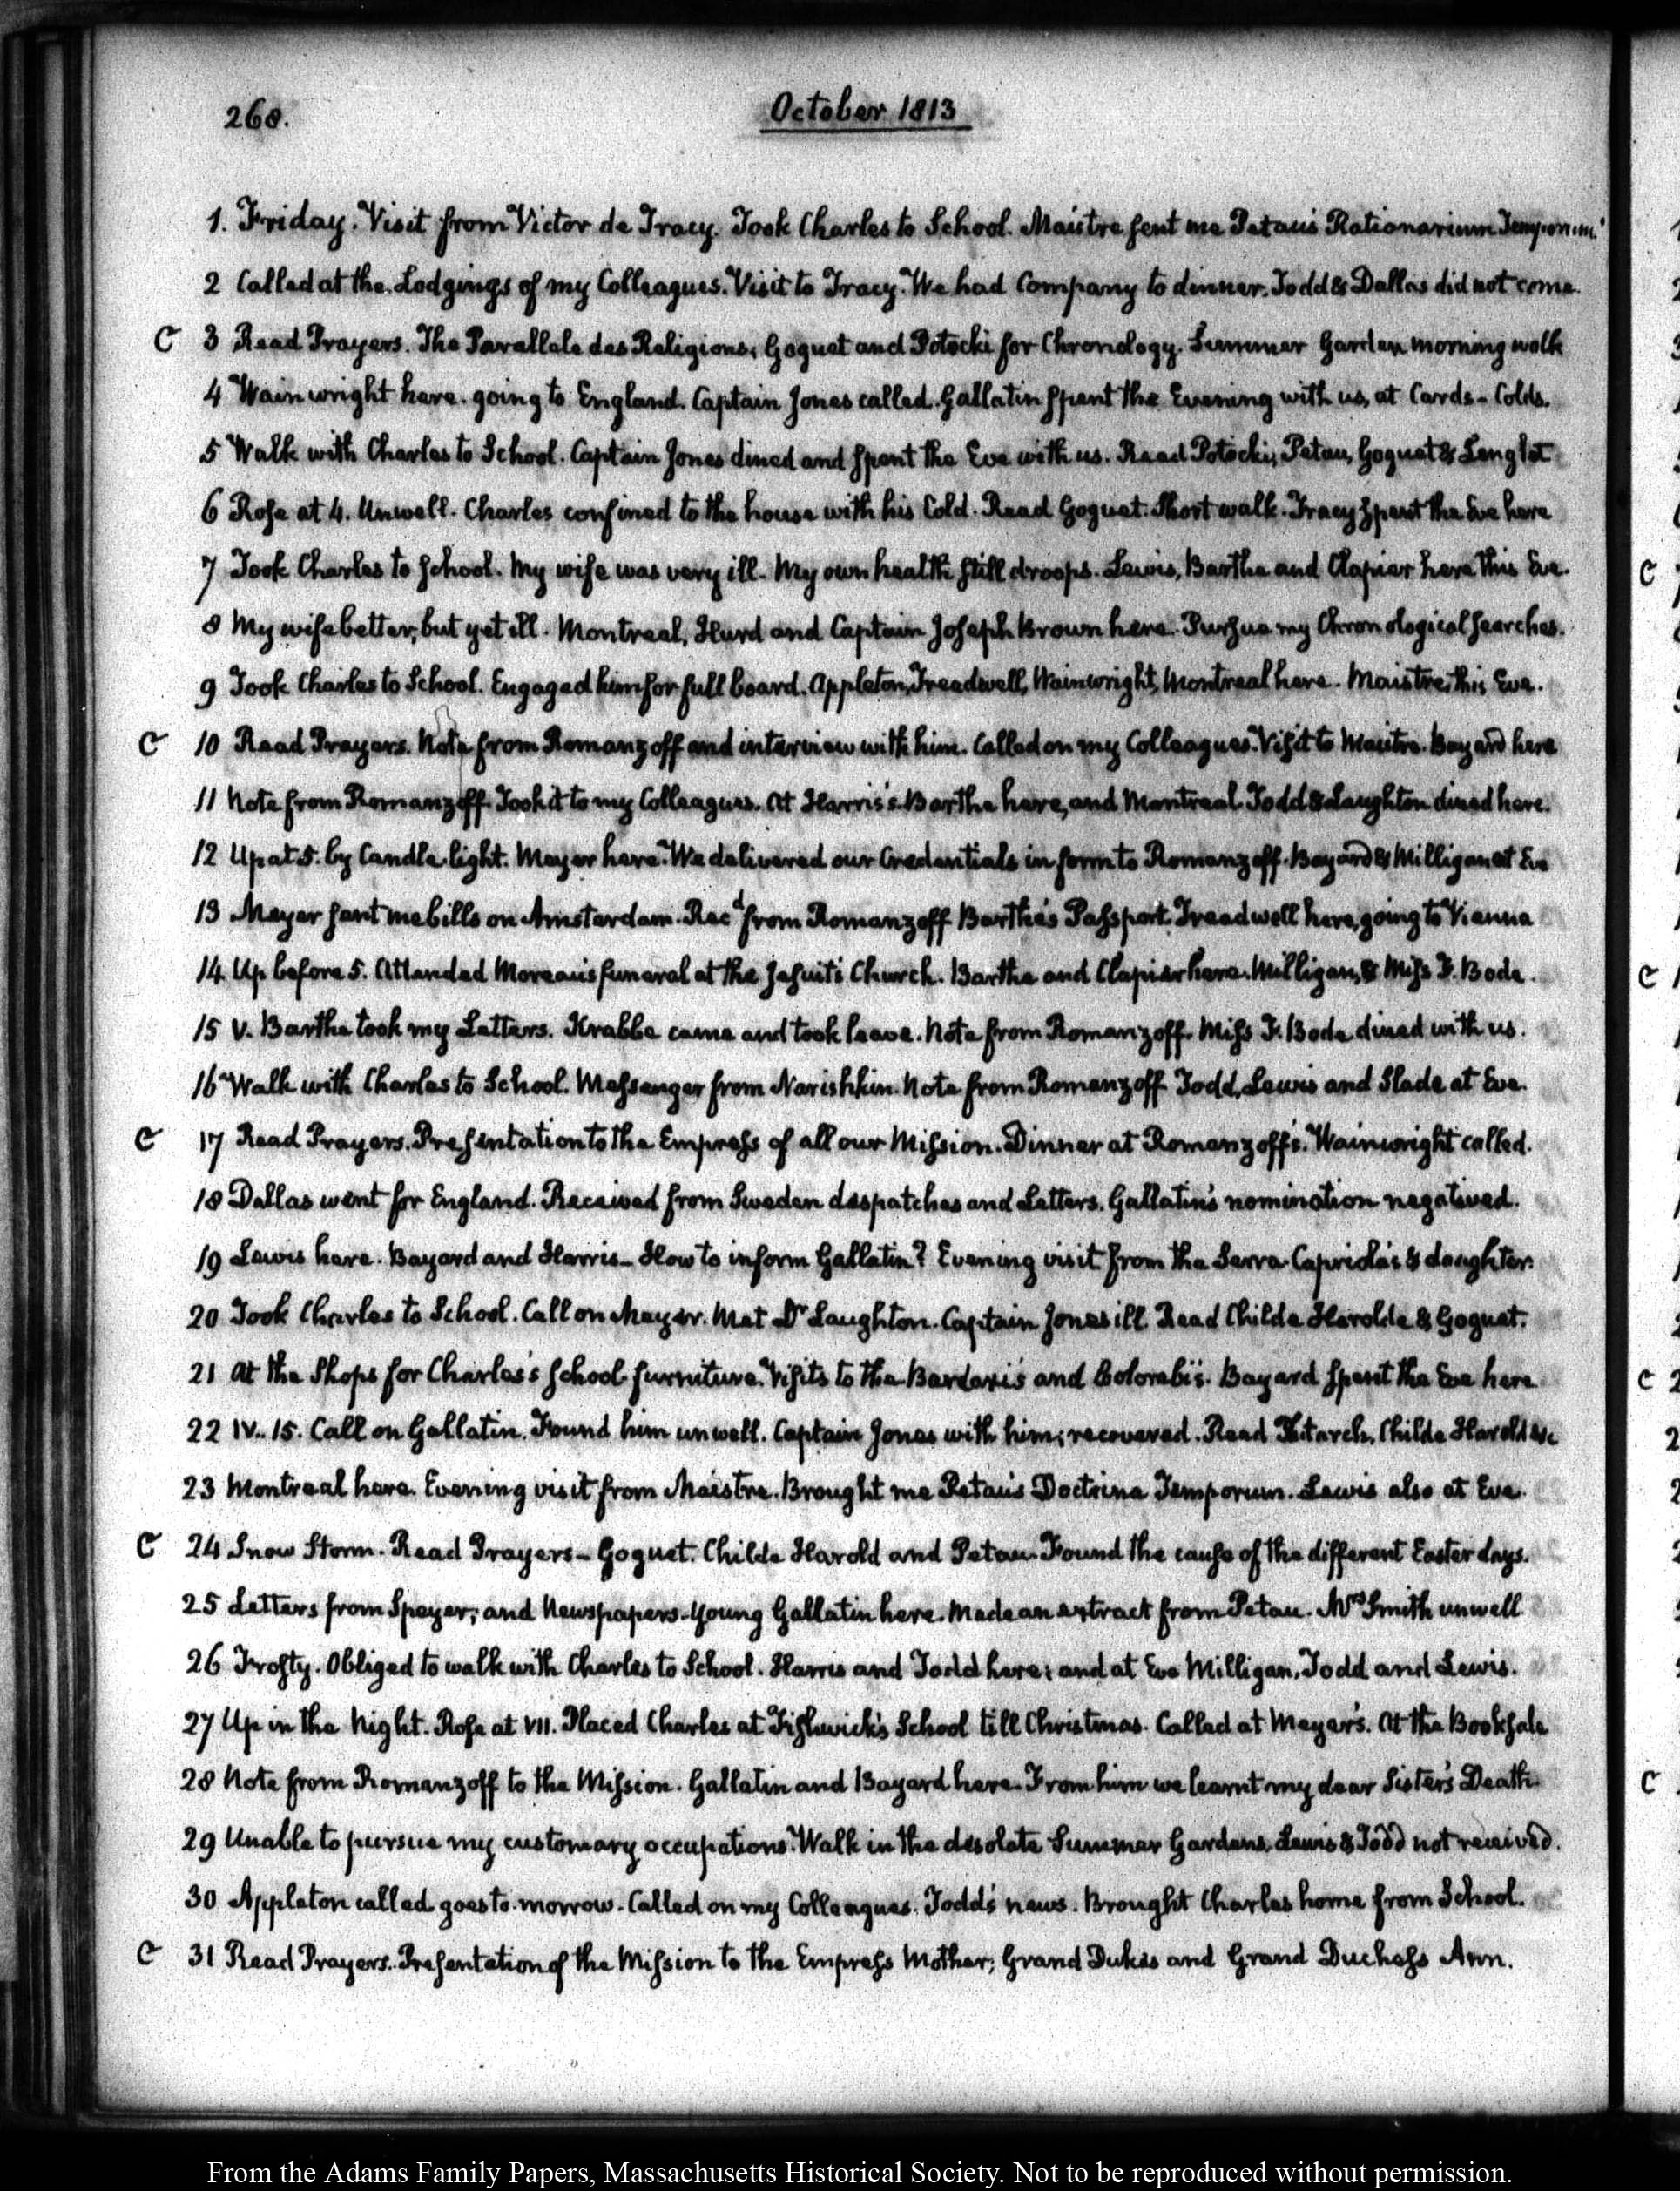 268.
October 1813
1. Friday. Visit from Victor de Tracy. Took Charles to School. Maistre sent me Petau's Rationarium Temporum.
2 Called at the Lodgings of my Colleagues. Visit to Tracy. We had Company to dinner. Todd & Dallas did not come.
C 3 Read Prayers. The Parallele des Religions; Goguet and Potocki for Chronology. Summer Garden morning walk
4 Wainwright here. going to England. Captain Jones called. Gallatin spent the Evening with us, at Cards- Colds.
5 Walk with Charles to School. Captain Jones dined and spent the Eve with us. Read Potocki, Petau, Goguet & Lenglet
6 Rose at 4. Unwell. Charles confined to the house with his Cold. Read Goguet. Short walk. Tracy spent the Eve here
7 Took Charles to School. My wife was very ill. My own health still droops. Lewis, Barthe and Clapier here this Eve.
8 My wife better, but yet ill. Montreal, Hurd and Captain Joseph Brown here. Pursue my Chronological searches.
9 Took Charles to School. Engaged him for full board. Appleton, Treadwell, Wainwright, Montreal here. Maistre this Eve.
C 10 Read Prayers. Note from Romanzoff and interview with him. Called on my Colleagues. Visit to Maistre. Bayard here
11 Note from Romanzoff. Took it to my Colleagues. At Harris's. Barthe here, and Montreal. Todd & Laughton dined here.
12 Up at 5. by Candle-light. Meyer here. We delivered our Credentials in form to Romanzoff. Bayard & Milligan at Eve
13 Meyer sent me bills on Amsterdam. Recd from Romanzoff Barthe's Passport. Treadwell here, going to Vienna
14. Up before 5. Attended Moreau's funeral at the Jesuits Church. Barthe and Clapier here. Milligan, & Miss F. Bode.
15 V. Barthe took my Letters. Krabbe came and took leave. Note from Romanzoff. Miss F. Bode dined with us.
16 Walk with Charles to School. Messenger from Narishkin. Note from Romanzoff Todd, Lewis and Slade at Eve.
C 17 Read Prayers. Presentation to the Empress of all our Mission. Dinner at Romanzoff's. Wainwright called.
18 Dallas went for England. Received from Sweden despatches and Letters. Gallatin's nomination negatived.
19 Lewis here. Bayard and Harris- How to inform Gallatin? Evening visit from the Serra-Capriola's & daughter.
20 Took Charles to School. Call on Meyer. Met Dr Laughton. Captain Jones ill. Read Childe Harolde & Goguet.
21 At the Shops for Charles's School furniture. Visits to the Bardaxi's and Colombi's. Bayard spent the Eve here
22 IV.. 15. Call on Gallatin. Found him unwell. Captain Jones with him; recovered. Read Plutarch, Childe Harold &c
23 Montreal here. Evening visit from Maistre. Brought me Petau's Doctrina Temporum. Lewis also at Eve.
C 24 Snow Storm. Read Prayers- Goguet. Childe Harold and Petau. Found the cause of the different Easter days.
25 Letters from Speyer; and Newspapers. Young Gallatin here. Made an extract from Petau. Mrs Smith unwell
26 Frosty. Obliged to walk with Charles to School. Harris and Todd here; and at Eve Milligan, Todd and Lewis.
27 Up in the Night. Rose at VII. Placed Charles at Fishwick's School till Christmas. Called at Meyer's. At the Booksale
28 Note from Romanzoff to the Mission. Gallatin and Bayard here. From him we learnt my dear Sister's Death.
29 Unable to pursue my customary occupations. Walk in the desolate Summer Gardens. Lewis & Todd not received.
30 Appleton called goes to-morrow. Called on my Colleagues. Todd's news. Brought Charles home from School.
C 31 Read Prayers. Presentation of the Mission to the Empress Mother; Grand Dukes and Grand Duchess Ann.
From the Adams Family Papers, Massachusetts Historical Society. Not to be reproduced without permission.